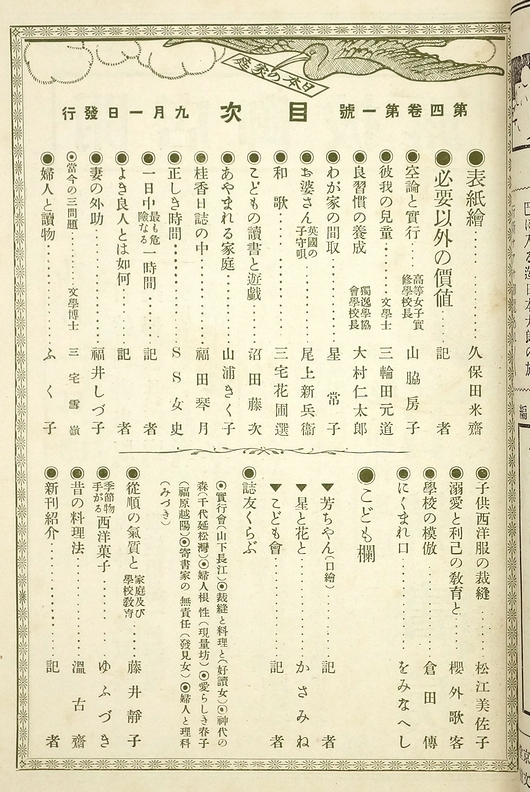 日本の家庭
第四卷第一號　目次　九月一日發行
◉表紙繪……久保田米齋
◉必要以外の價値……記者
◉空論と實行……高等女子實修學校長 山脇房子
◉彼我の兒童……文學士 三輪田元道
◉良習慣の養成……獨逸學協會學校長 大村仁太郎
◉わが家の間取……星常子
◉お婆さん 英國の子守唄……尾上新兵衞
◉和歌……三宅花圃選
◉こどもの讀書と遊戲……沼田藤次
◉あやまれる家庭……山浦きく子
◉桂香日誌の中……福田琴月
◉正しき時間……SS女史
◉一日中最も危險なる一時間……記者
◉よき良人とは如何……記者
◉妻の外助……福井しづ子
◉當今の三問題……文學博士 三宅雪嶺
◉婦人と讀物……ふく子
◉子供西洋服の裁縫……松江美佐子
◉溺愛と利己の敎育と……櫻外歌客
◉學校の模倣……倉田傳
◉にくまれ口……をみなへし
●こども欄
▼芳ちやん(口繪)……記者
▼星と花と……かさみね
▼こども會……記者
◉誌友くらぶ
◉實行會(山下長江)◉裁縫と料理と(好讀女)◉神代の
森(千代延松灣)◉婦人根性(現量坊)◉愛らしき春子
(福原越陽)◉寄書家の無責任(發見女)◉婦人と理科
(みづき)
◉從順の氣質と 家庭及び學校敎育……藤井靜子
◉季節物手がる西洋菓子……ゆふづき
◉昔の料理法……溫古齋
◉新刊紹介……記者